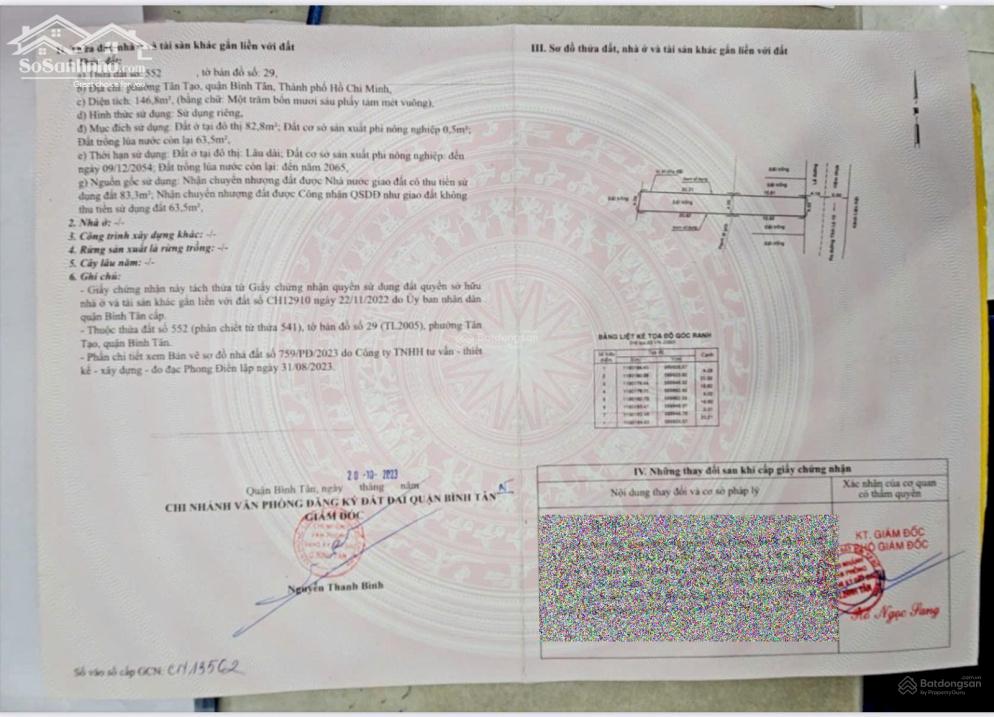 SoSanhnha.com
Great choice for you
ửa đất, nhà ở và tài sản khác gắn liền với đất
a) Thửa đất số: 552 , tờ bản đồ số: 29,
b) Địa chỉ: phường Tân Tạo, quận Bình Tân, Thành phố Hồ Chí Minh,
c) Diện tích: 146,8m², (bằng chữ: Một trăm bốn mươi sáu phẩy tám mét vuông),
d) Hình thức sử dụng: Sử dụng riêng,
đ) Mục đích sử dụng: Đất ở tại đô thị 82,8m²; Đất cơ sở sản xuất phi nông nghiệp 0,5m²;
Đất trồng lúa nước còn lại 63,5m²,
e) Thời hạn sử dụng: Đất ở tại đô thị: Lâu dài; Đất cơ sở sản xuất phi nông nghiệp: đến
ngày 09/12/2054; Đất trồng lúa nước còn lại: đến năm 2065,
g) Nguồn gốc sử dụng: Nhận chuyển nhượng đất được Nhà nước giao đất có thu tiền sử
dụng đất 83,3m²; Nhận chuyển nhượng đất được Công nhận QSDĐ như giao đất không
thu tiền sử dụng đất 63,5m²,
2. Nhà ở: -/-
3. Công trình xây dựng khác: -/-
4. Rừng sản xuất là rừng trồng: -/-
5. Cây lâu năm: -/-
6. Ghi chú:
- Giấy chứng nhận này tách thửa từ Giấy chứng nhận quyền sử dụng đất quyền sở hữu
nhà ở và tài sản khác gắn liền với đất số CH12910 ngày 22/11/2022 do Ủy ban nhân dân
quận Bình Tân cấp.
- Thuộc thửa đất số 552 (phân chiết từ thửa 541), tờ bản đồ số 29 (TL2005), phường Tân
Tạo, quận Bình Tân.
- Phần chi tiết xem Bản vẽ sơ đồ nhà đất số 759/PĐ/2023 do Công ty TNHH tư vấn - thiết
kế - xây dựng - đo đạc Phong Điền lập ngày 31/08/2023.
20-10-2023
Quận Bình Tân, ngày tháng năm
CHI NHÁNH VĂN PHÒNG ĐĂNG KÝ ĐẤT ĐAI QUẬN BÌNH TÂN
GIÁM ĐỐC
Nguyễn Thanh Bình
Số vào sổ cấp GCN: CH13562
III. Sơ đồ thửa đất, nhà ở và tài sản khác gắn liền với đất
Đất trống
Đất trống
Đất trống
Đất trống
BẢNG LIỆT KÊ TỌA ĐỘ GÓC RANH
Cạnh
IV. Những thay đổi sau khi cấp giấy chứng nhận
Nội dung thay đổi và cơ sở pháp lý
Xác nhận của cơ quan
có thẩm quyền
KT. GIÁM ĐỐC
PHÓ GIÁM ĐỐC
Ngọc Sang
Batdongsan
Batdongsan.com
by PropertyGuru